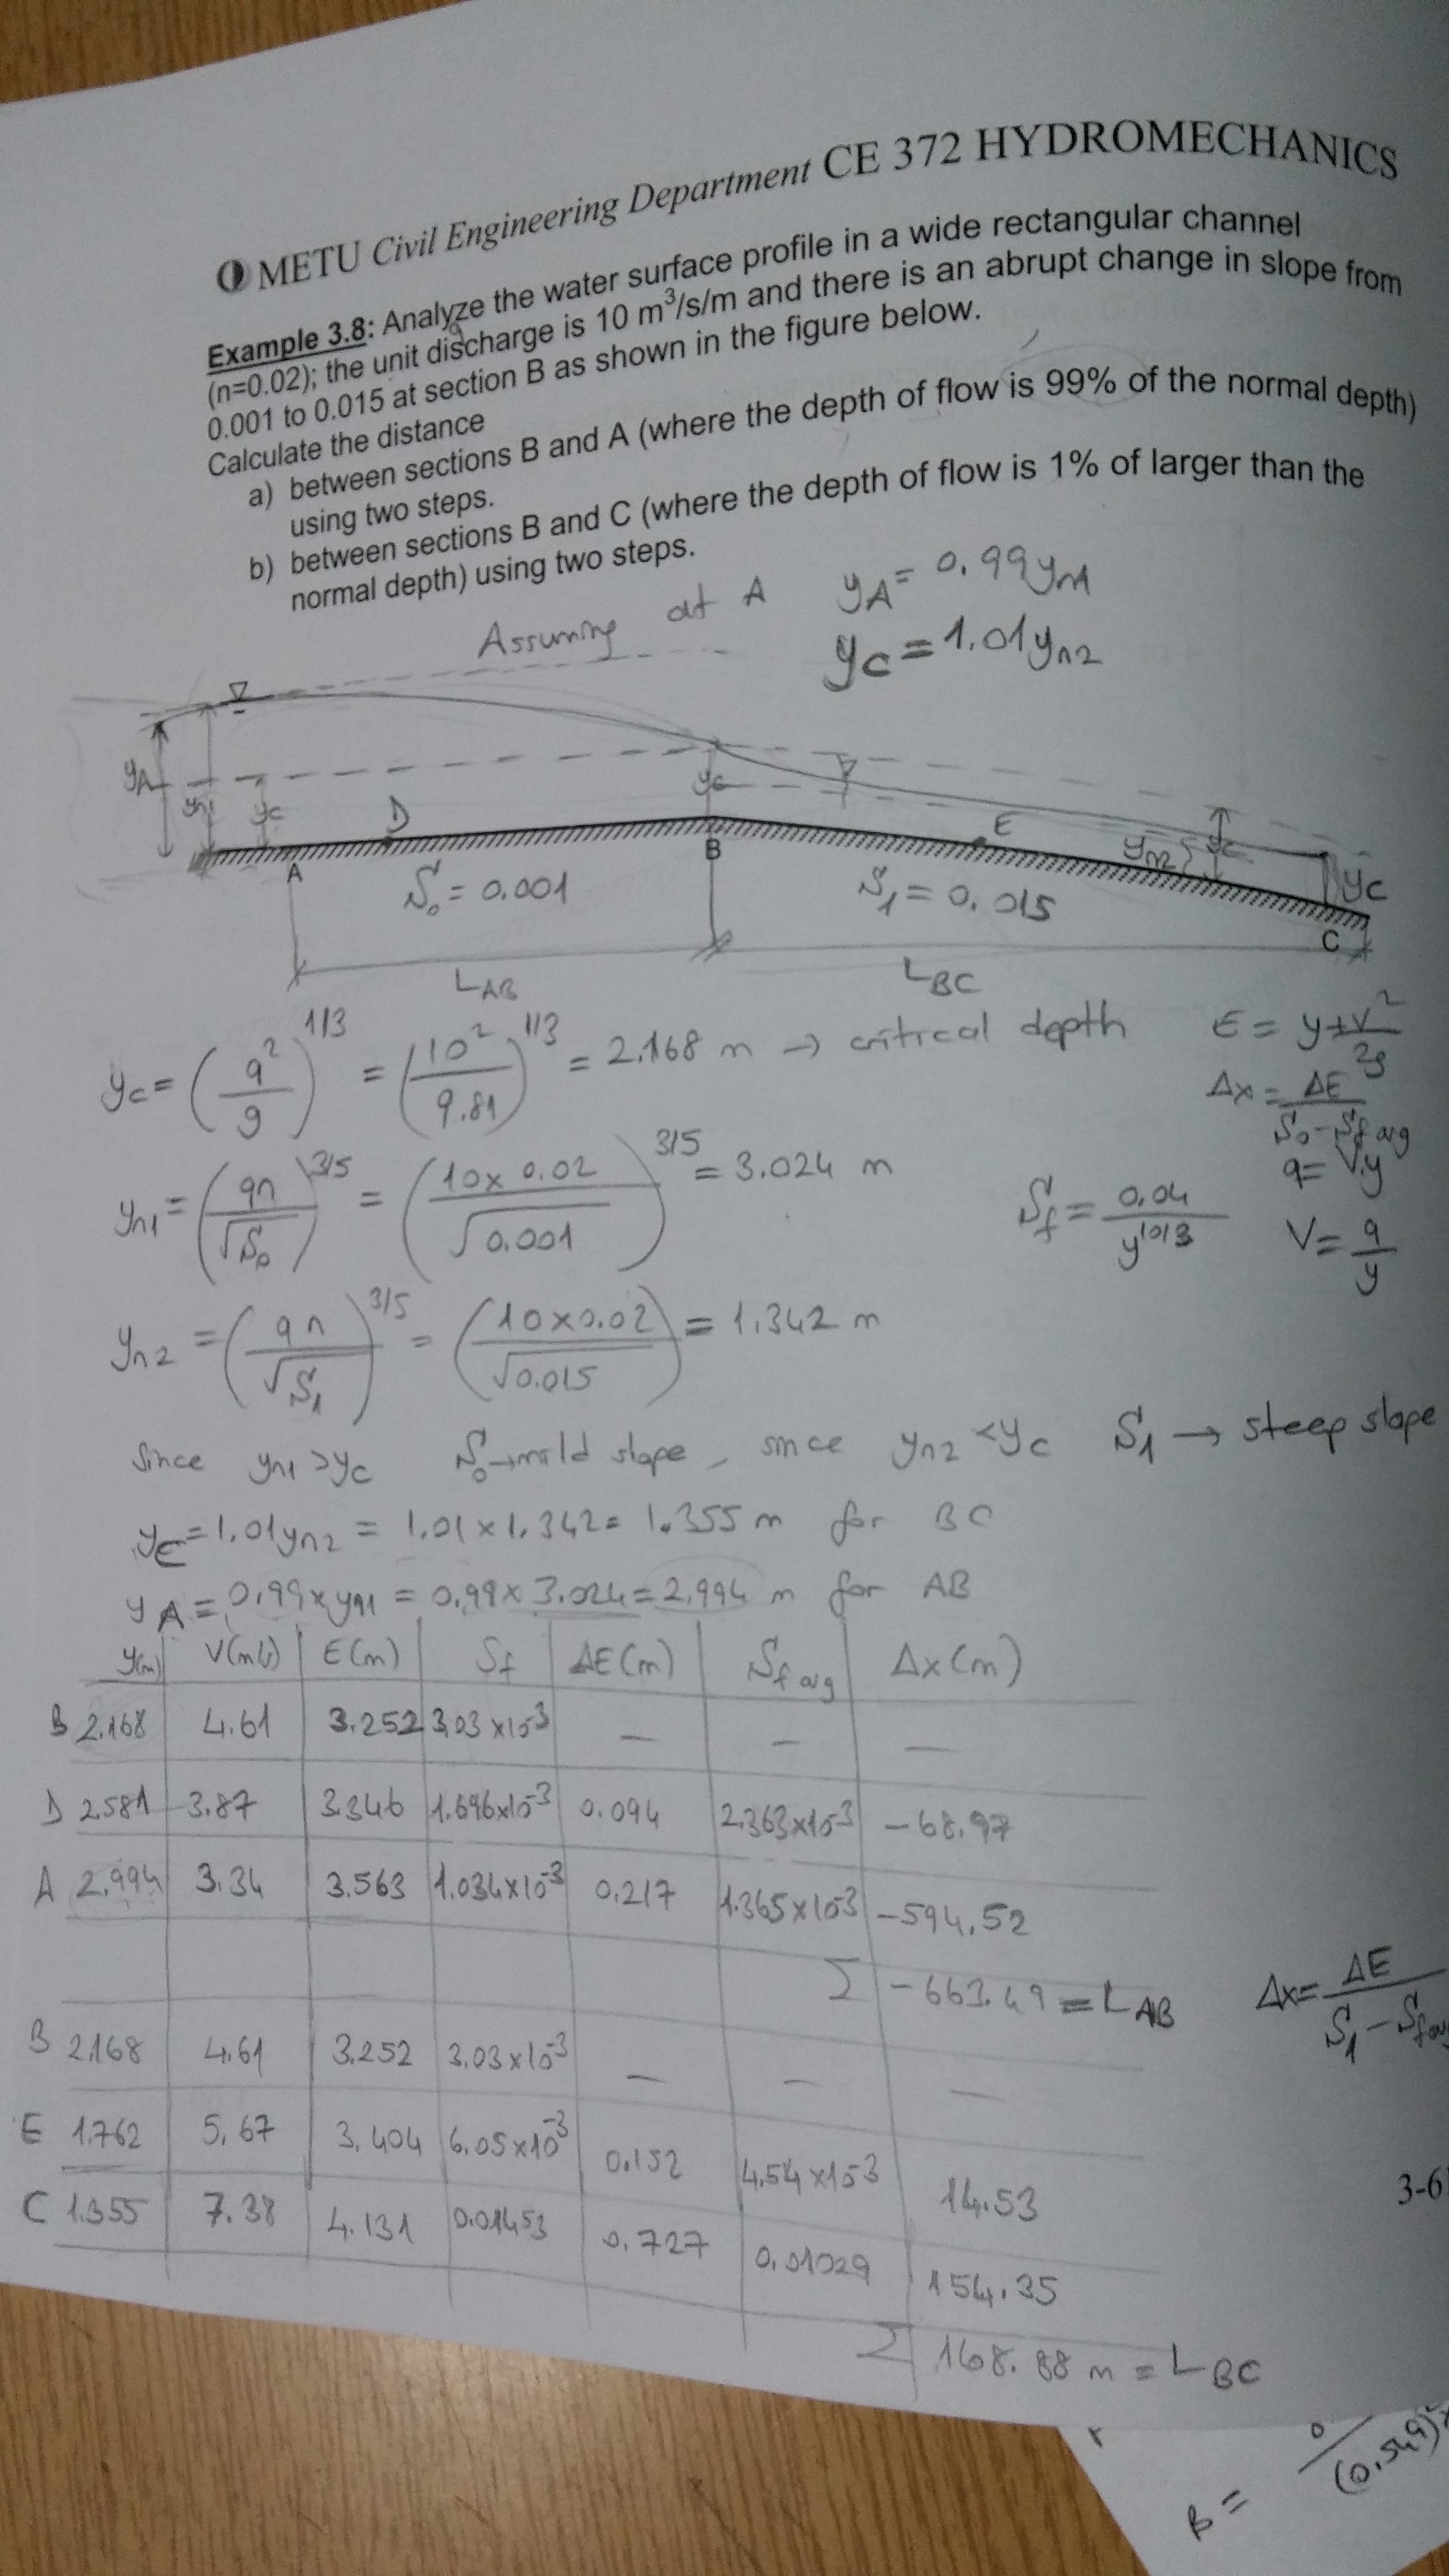 METU Civil Engineering Department CE 372 HYDROMECHANICS
Example 3.8: Analyze the water surface profile in a wide rectangular channel
(n=0.02); the unit discharge is 10 m³/s/m and there is an abrupt change in slope from
0.001 to 0.015 at section B as shown in the figure below.
Calculate the distance
a) between sections B and A (where the depth of flow is 99% of the normal depth)
using two steps.
b) between sections B and C (where the depth of flow is 1% of larger than the
normal depth) using two steps.
Assuming at A yA = 0.99yn1
yC = 1.01yn2
yA yn1 yc D yc E yn2 yc yC
A B C
S₀ = 0.001 S₁ = 0.015
LAB LBC
yc = (q²/g)^1/3 = (10²/9.81)^1/3 = 2.168 m → critical depth E = y+V²/2g
Δx = ΔE/(S₀-Sf avg)
yn1 = (qn/√S₀)^3/5 = (10x0.02/√0.001)^3/5 = 3.024 m q = V.y
Sf = 0.04/y^10/3 V = q/y
yn2 = (qn/√S₁)^3/5 = (10x0.02/√0.015) = 1.342 m
Since yn1 > yc S₀→mild slope, since yn2 < yc S₁ → steep slope
yC = 1.01yn2 = 1.01x1.342 = 1.355 m for BC
yA = 0.99xyn1 = 0.99x3.024 = 2.994 m for AB
y(m) V(m/s) E(m) Sf ΔE(m) Sf avg Δx(m)
B 2.168 4.61 3.252 3.03x10⁻³ — — —
D 2.581 3.87 3.346 1.696x10⁻³ 0.094 2.363x10⁻³ -68.97
A 2.994 3.34 3.563 1.034x10⁻³ 0.217 1.365x10⁻³ -594.52
Σ -663.49 = LAB Δx = ΔE/(S₁-Sf av
B 2.168 4.61 3.252 3.03x10⁻³ — — —
E 1.762 5.67 3.404 6.05x10⁻³ 0.152 4.54x10⁻³ 14.53
C 1.355 7.38 4.131 0.01453 0.727 0.01029 154.35
3-6
Σ 168.88 m = LBC
B = 0/(0.549)